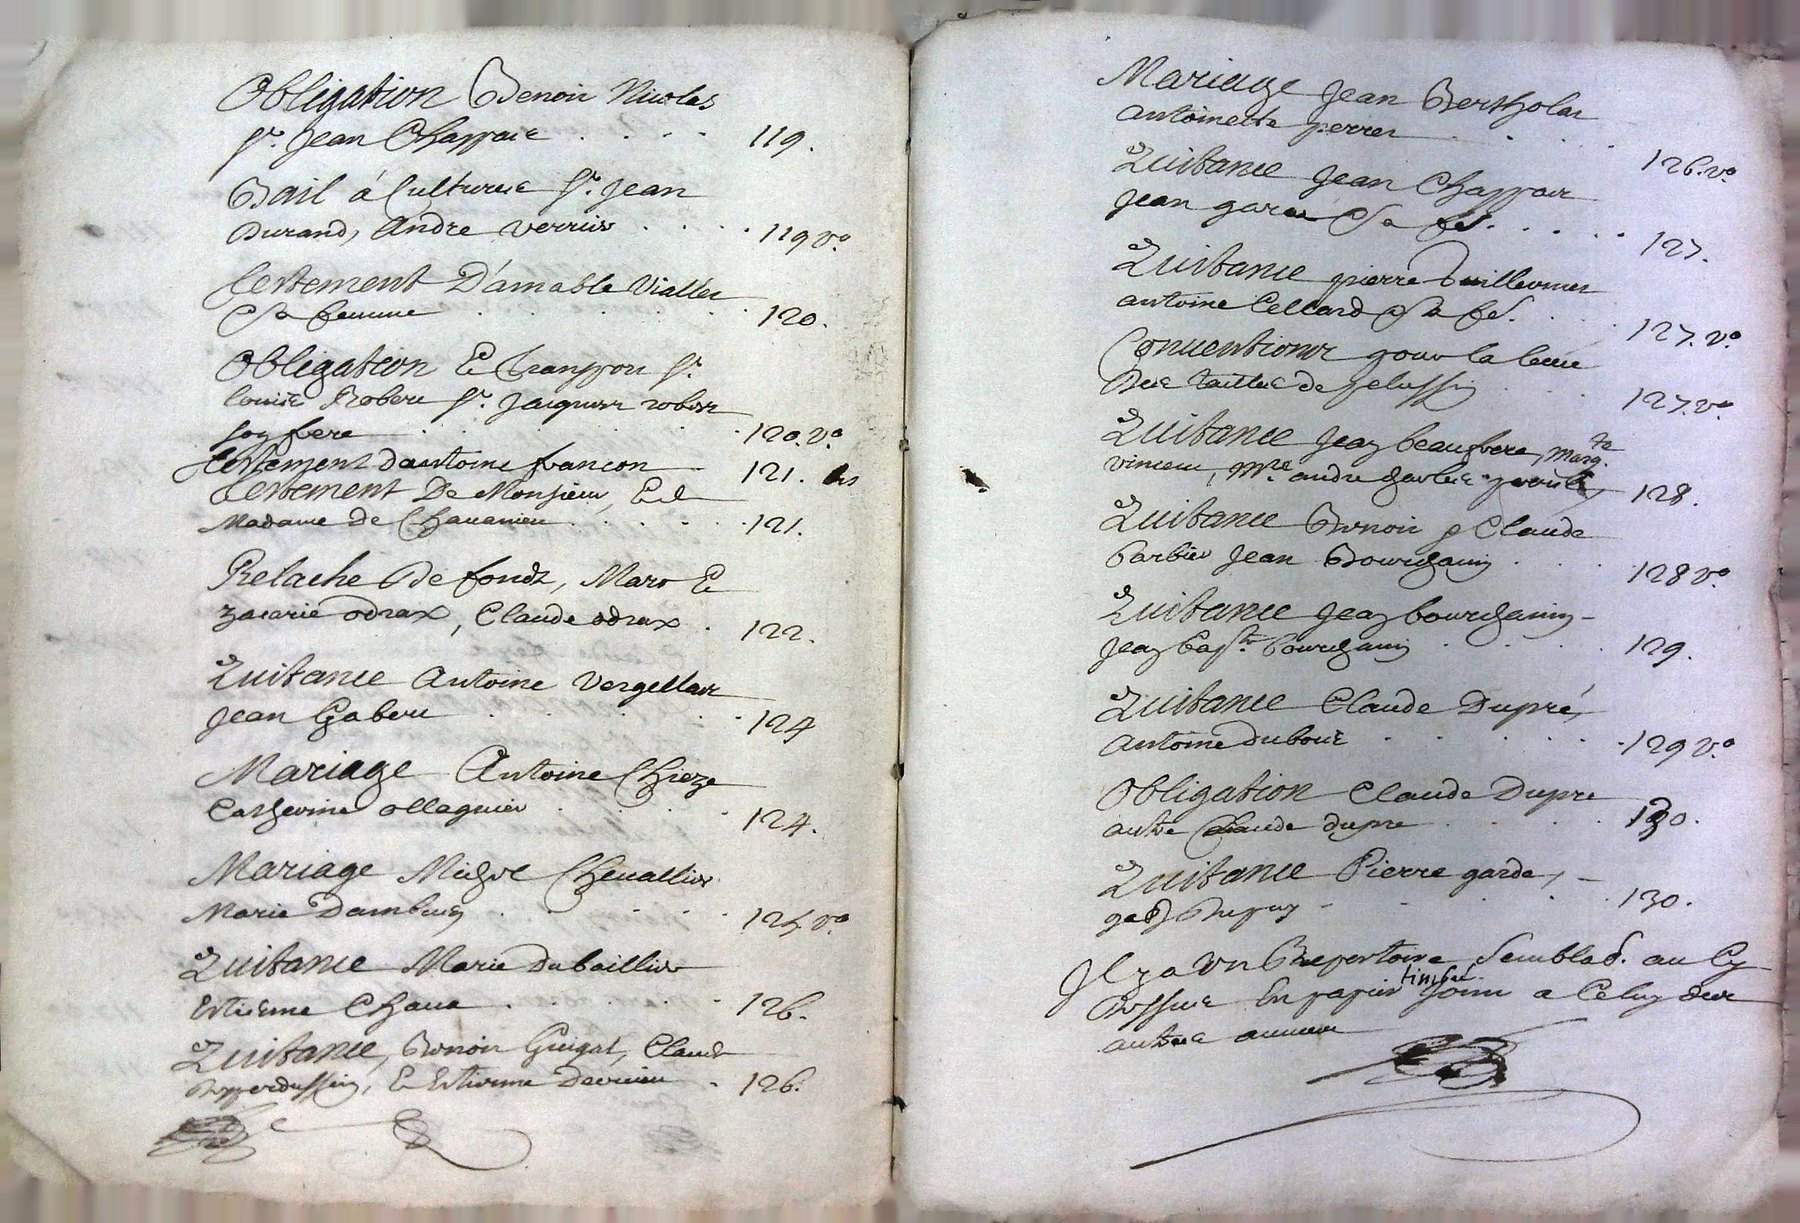 Obligation Benoit Nicolas
Sr. Jean Chappuis 119.
Bail á Culture Sr. Jean
Durand, André verrier 119 vo.
Testement D'amable Viallet
& sa femme 120.
Obligation Et Transport Sr.
Louis Robert Sr. Jacques robert
son frere 120. vo
Testement d'antoine francon 121. bis
Testement De Monsieur, Et
Madame de Chavanieu 121.
Relache De fondz, Marc Et
zacarie odrax, Claude odrax 122.
Quitance Antoine Vergellas
Jean Gabert 124
Mariage Antoine Chieze
Catherine ollagnier 124.
Mariage Michel Chevallier
Marie Dambuy 125 vo
Quitance Marie dubaillier
Estienne Chava 126.
Quitance, Benoit Guigal, Claude
Et Estienne 126.
Mariage Jean Bertholat
antoinette perret 126. vo.
Quitance Jean Chappuis
Jean & sa fe. 127.
Quitance pierre Guillermet
antoine Cellard & sa fe. 127. vo.
Conventions pour la levée
Des tailles de pelussin 127. vo
Quitance Jean beaufrere, Marg.te
vincent, Mre. andre 128.
Quitance Benoit & Claude
Barbier Jean Bourchanin 128 vo
Quitance Jean bourchanin
Jean bapte. bourchanin 129.
Quitance Claude Dupré,
antoine duboue 129 vo.
Obligation Claude Dupre
autre Claude dupre 130.
Quitance Pierre garde,
Dupuy 130.
Il y a Un Repertoire Semblab. au Cy
Dessus En papier timbré joint a Celuy des
autres années